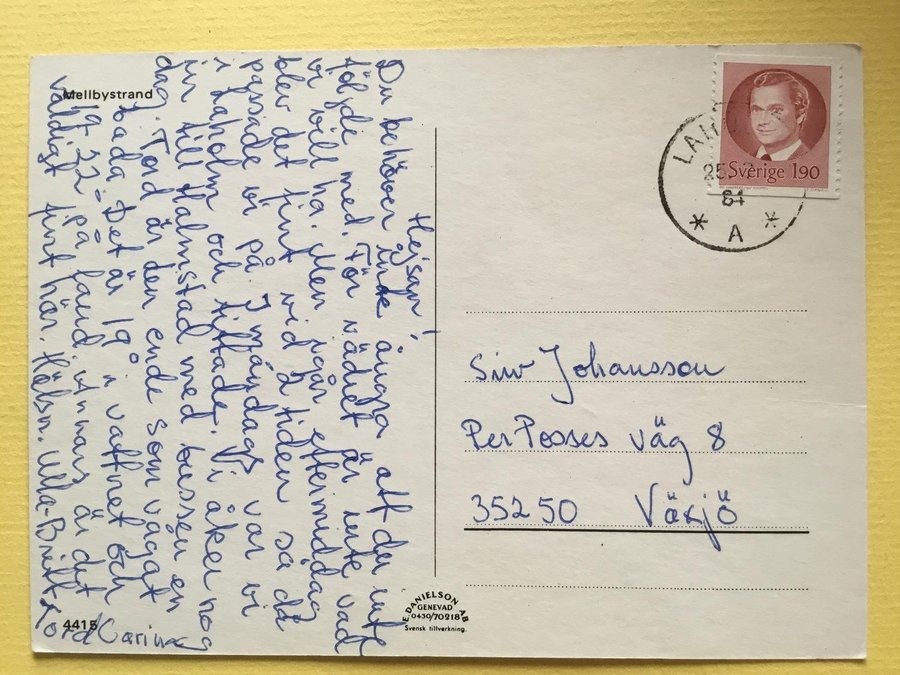 Mellbystrand
Hejsan!
Du behöver inte ångra att du inte
följde med. För vädret är inte vad
vi vill ha. Men igår eftermiddag
blev det fint vid 2 tiden så då
passade vi på. I måndags var vi
i Laholm och tittade. Vi åker nog
in till Halmstad med bussen en
dag. Tord är den ende som vågat
bada. Det är 19° i vattnet och
19-22° på land. Annars är det
väldigt fint här. Hälsn. Ulla-Britt
Tord Carina
4415
E. DANIELSON AB
GENEVAD
0430/70218
Svensk tillverkning.
LAH
25
84
* A *
Sverige 190
Siw Johansson
Per Posses väg 8
35250 Växjö